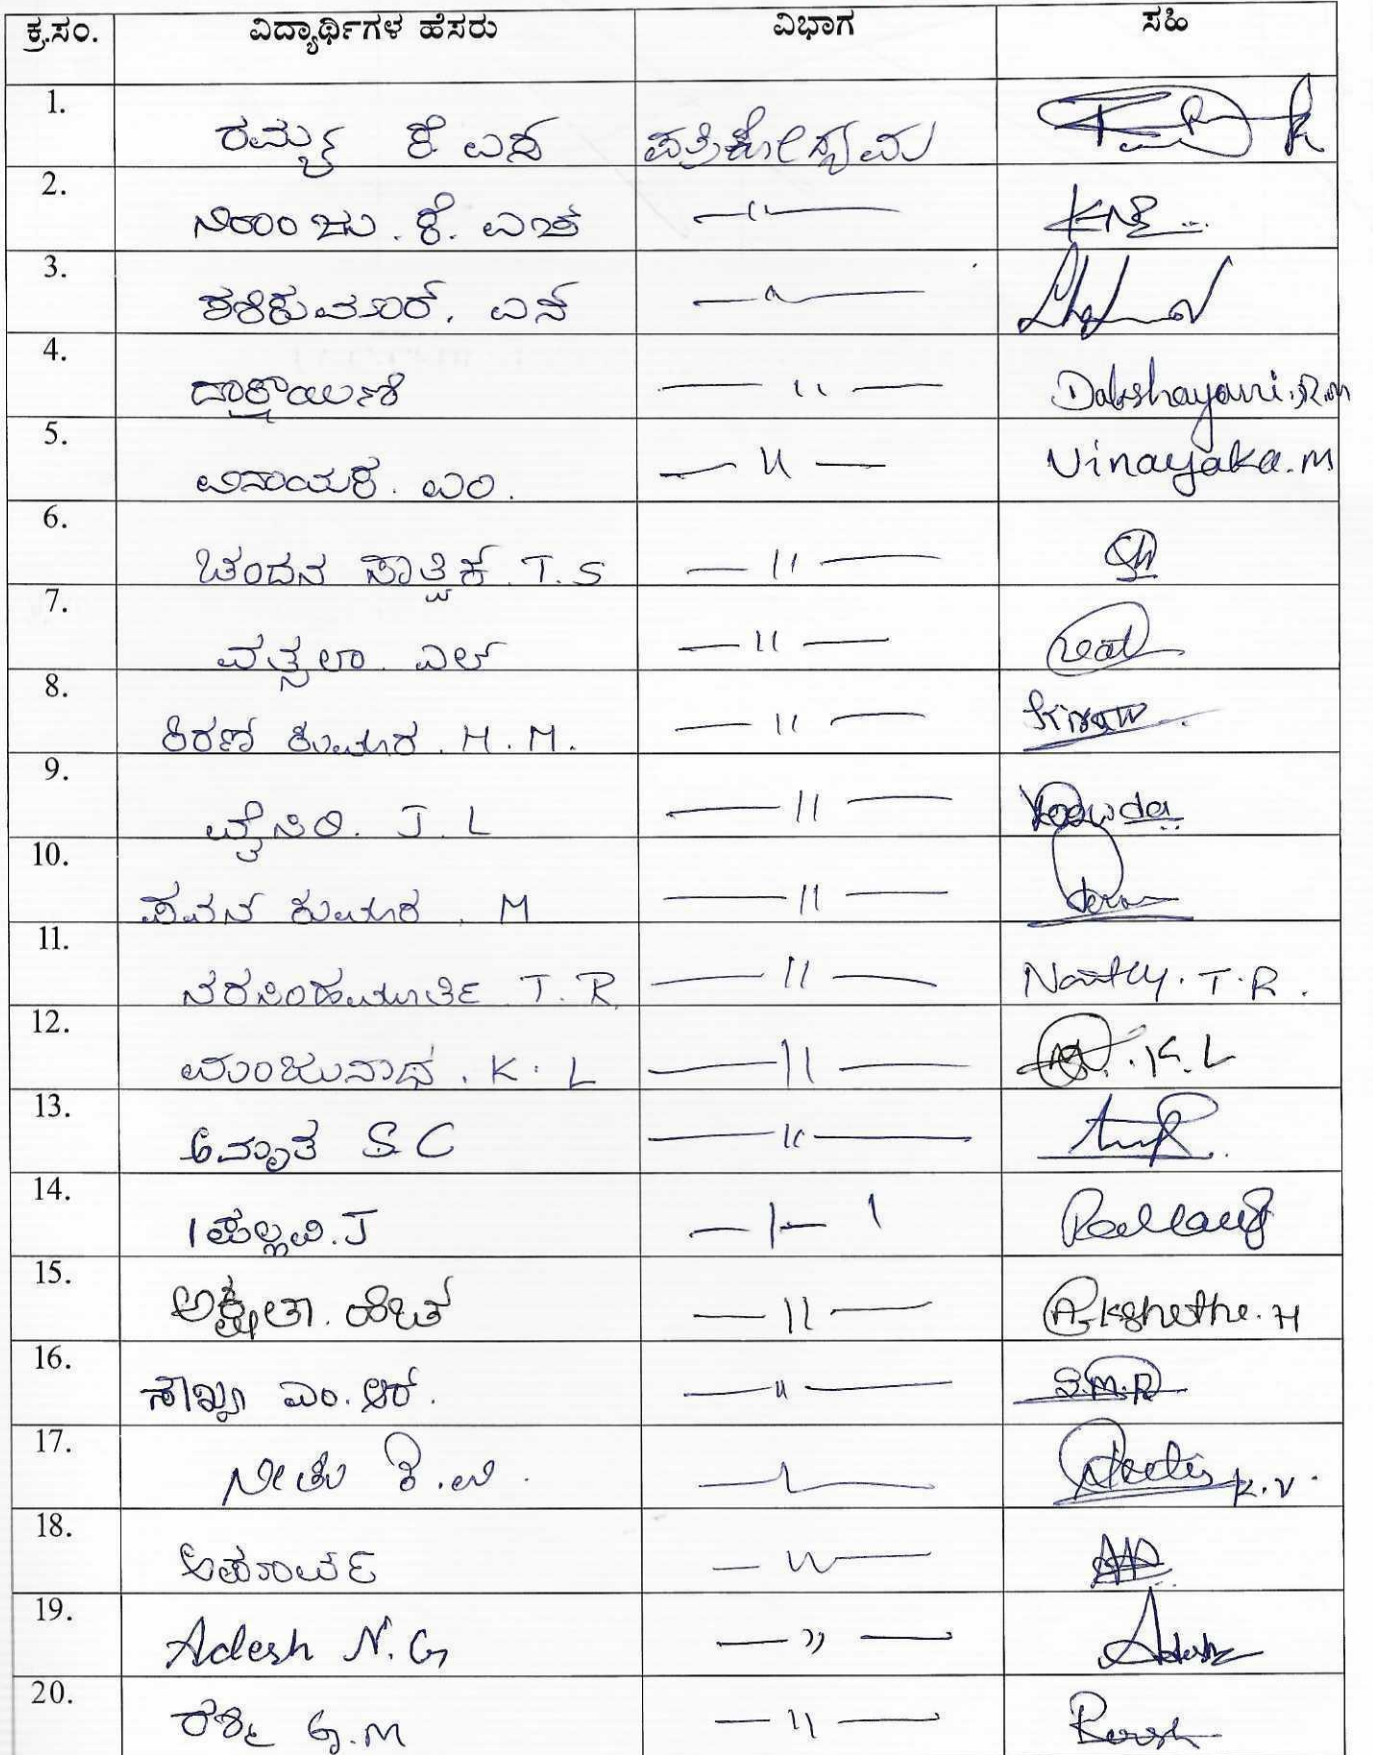 ಕ್ರ.ಸಂ. ವಿದ್ಯಾರ್ಥಿಗಳ ಹೆಸರು ವಿಭಾಗ ಸಹಿ
1. ರಮ್ಯ ಕೆ ಎಸ್ ಪತ್ರಿಕೋದ್ಯಮ
2. ಕೆ. ಎಚ್ —〃—
3. ಶಶಿಕುಮಾರ್. ಎನ್ —〃—
4. ದಾಕ್ಷಾಯಿಣಿ —〃— Dakshayani.R.M
5. ವಿನಾಯಕ. ಎಂ. —〃— Vinayaka.M
6. ಚಂದನ ಸಾತ್ವಿಕ್ T.S —〃—
7. ವತ್ಸಲಾ ಎಲ್ —〃—
8. ಕಿರಣ್ ಕುಮಾರ. H.M. —〃— Kiran
9. J.L —〃—
10. ಪವನ್ ಕುಮಾರ. M —〃—
11. ನರಸಿಂಹಮೂರ್ತಿ T.R —〃— T.R.
12. ಮಂಜುನಾಥ. K.L —〃— M.K.L
13. ಅಮೃತ S C —〃—
14. ಪಲ್ಲವಿ.J —〃— Pallavi
15. ಅಕ್ಷತಾ. ಹೆಚ್ —〃— Akshatha.H
16. ಸೌಖ್ಯ ಎಂ.ಆರ್. —〃— S.M.R
17. ನೀತು ಕೆ.ವಿ. —〃— K.V.
18. ಅಪೂರ್ವ —〃—
19. Adesh N.G —〃— Adesh
20. G.M —〃—